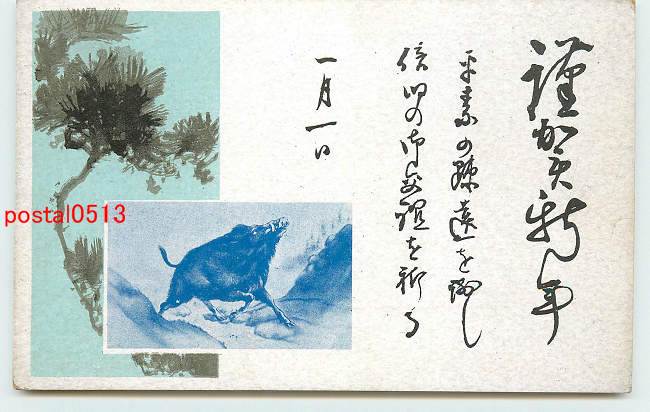 謹賀新年
平素の疎遠を謝し
倍旧の御交誼を祈る
一月一日
postal0513